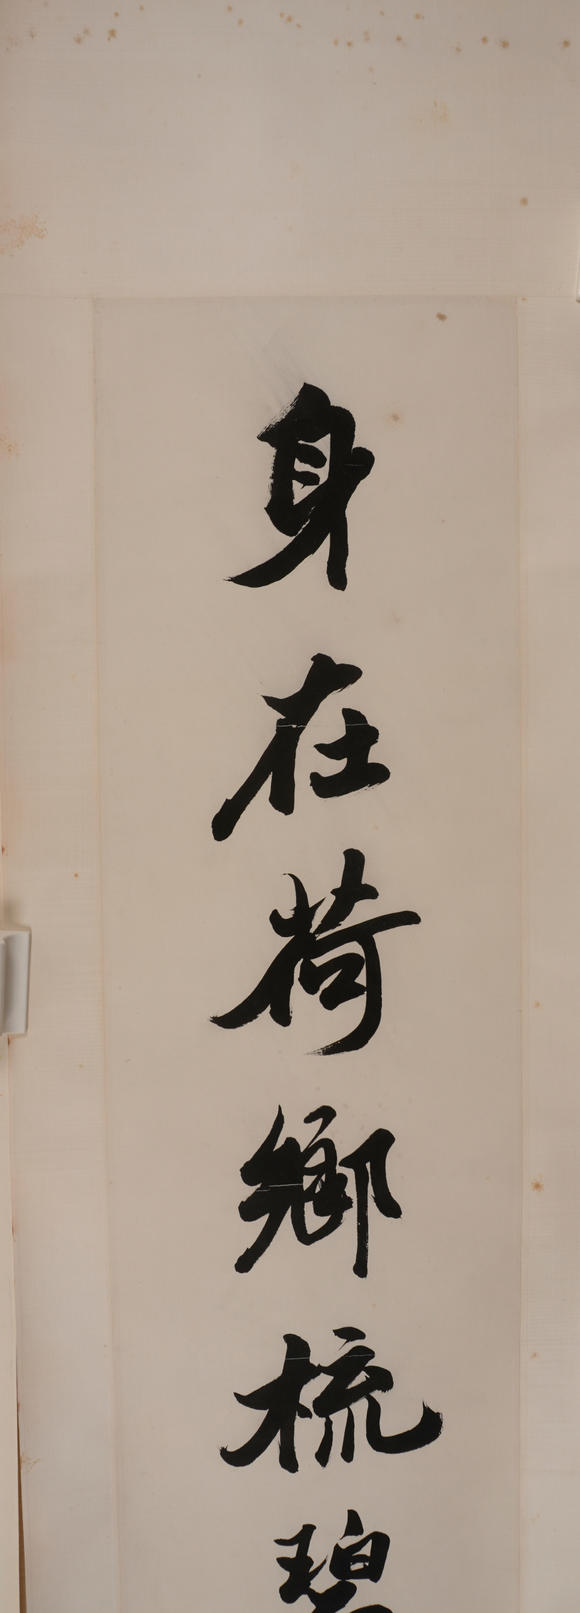 身在荷鄉梳碧